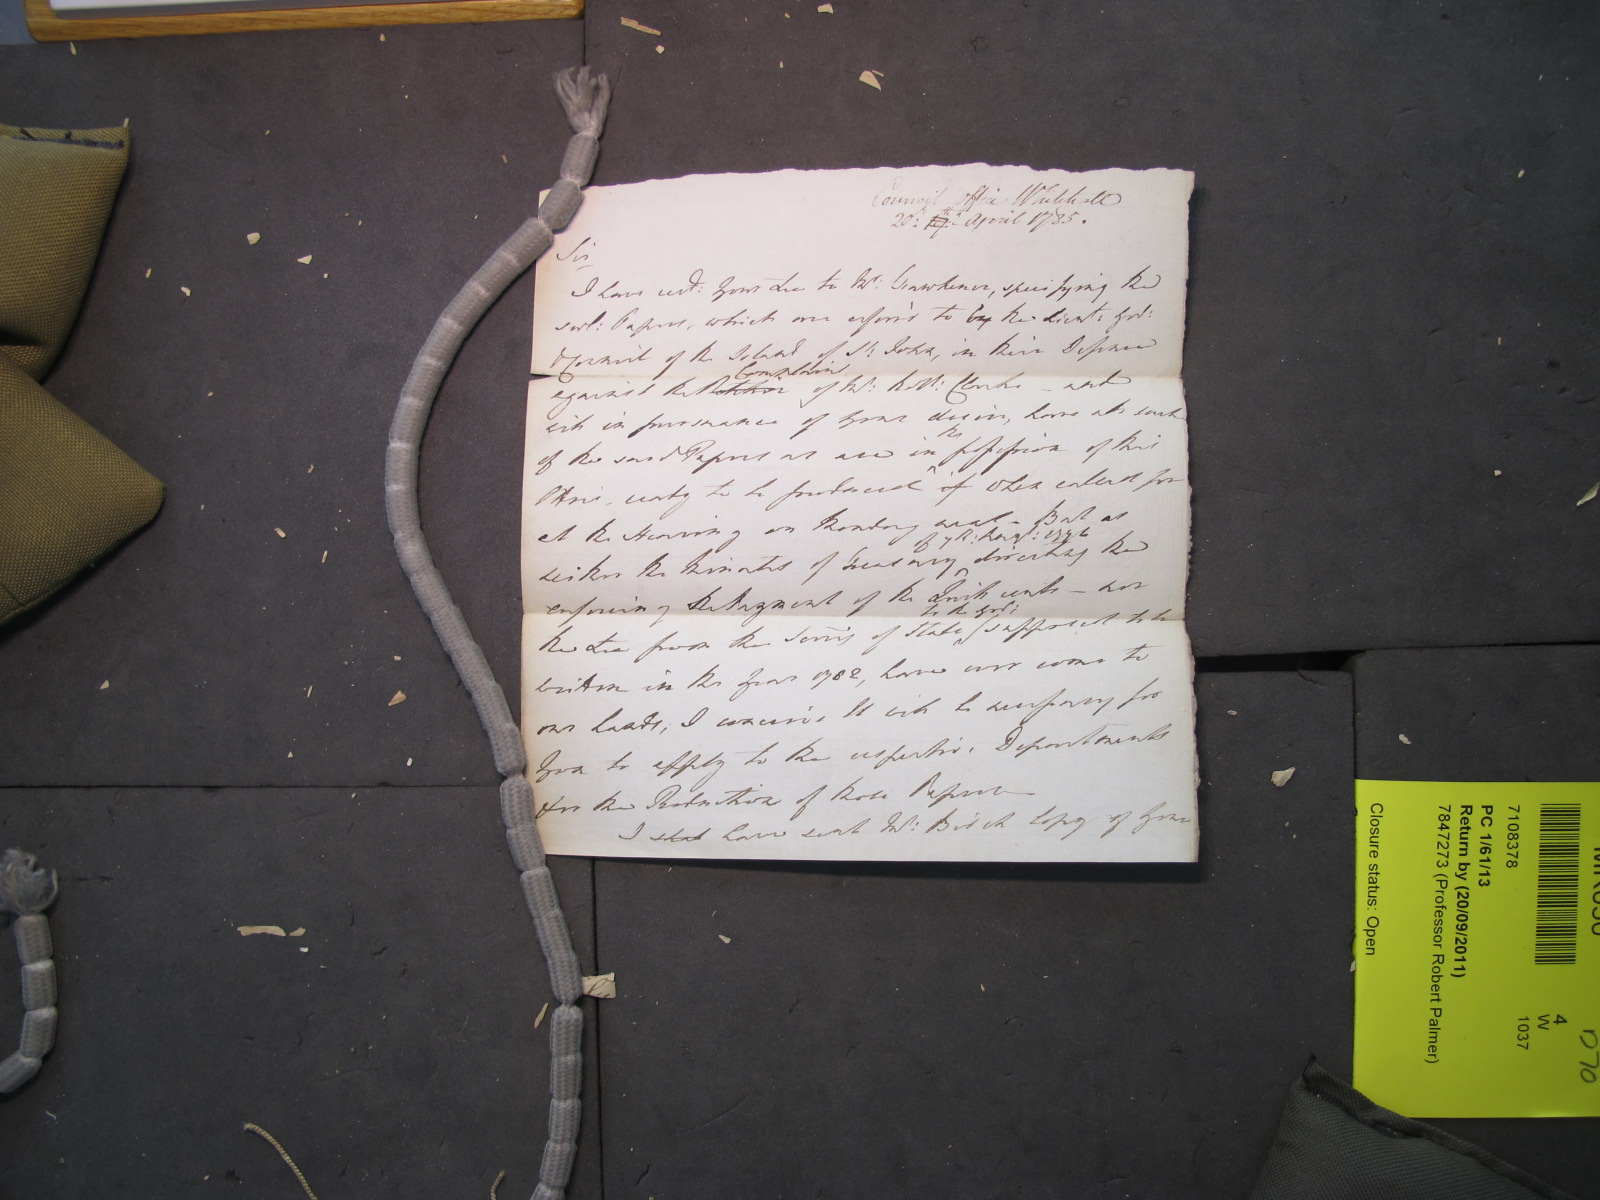 Council Office Whitehall
20th: 19th: April 1785.
Sir
I have recd: Your Lre to Mr: Fawkener, specifying the
sevl: Papers, which are referr'd to by the Lieut: Govr:
& Council of the Island of St: John, in their Defence
Complaint
against the Petition of Mr: Robt: Clarke - and
will in pursuance of Your desire, have all such
the
of the said Papers as are in possession of this
Office, ready to be produced if when called for
at the Hearing on Monday next - But as
of 7th: Augt: 1776
neither the Minutes of Treasury directing the
enforcing the Payment of the Quit rents - nor
to the Govr:
the Lre from the Secrys of State supposed to be
written in the Year 1782, have ever come to
our hands, I conceive It will be necessary for
You to apply to the respective Departments
for the Production of those Papers
I shall have sent Mr: Birch Copy of Your
7108378
PC 1/61/13
Return by (20/09/2011)
7847273 (Professor Robert Palmer)
Closure status: Open
4
W
1037